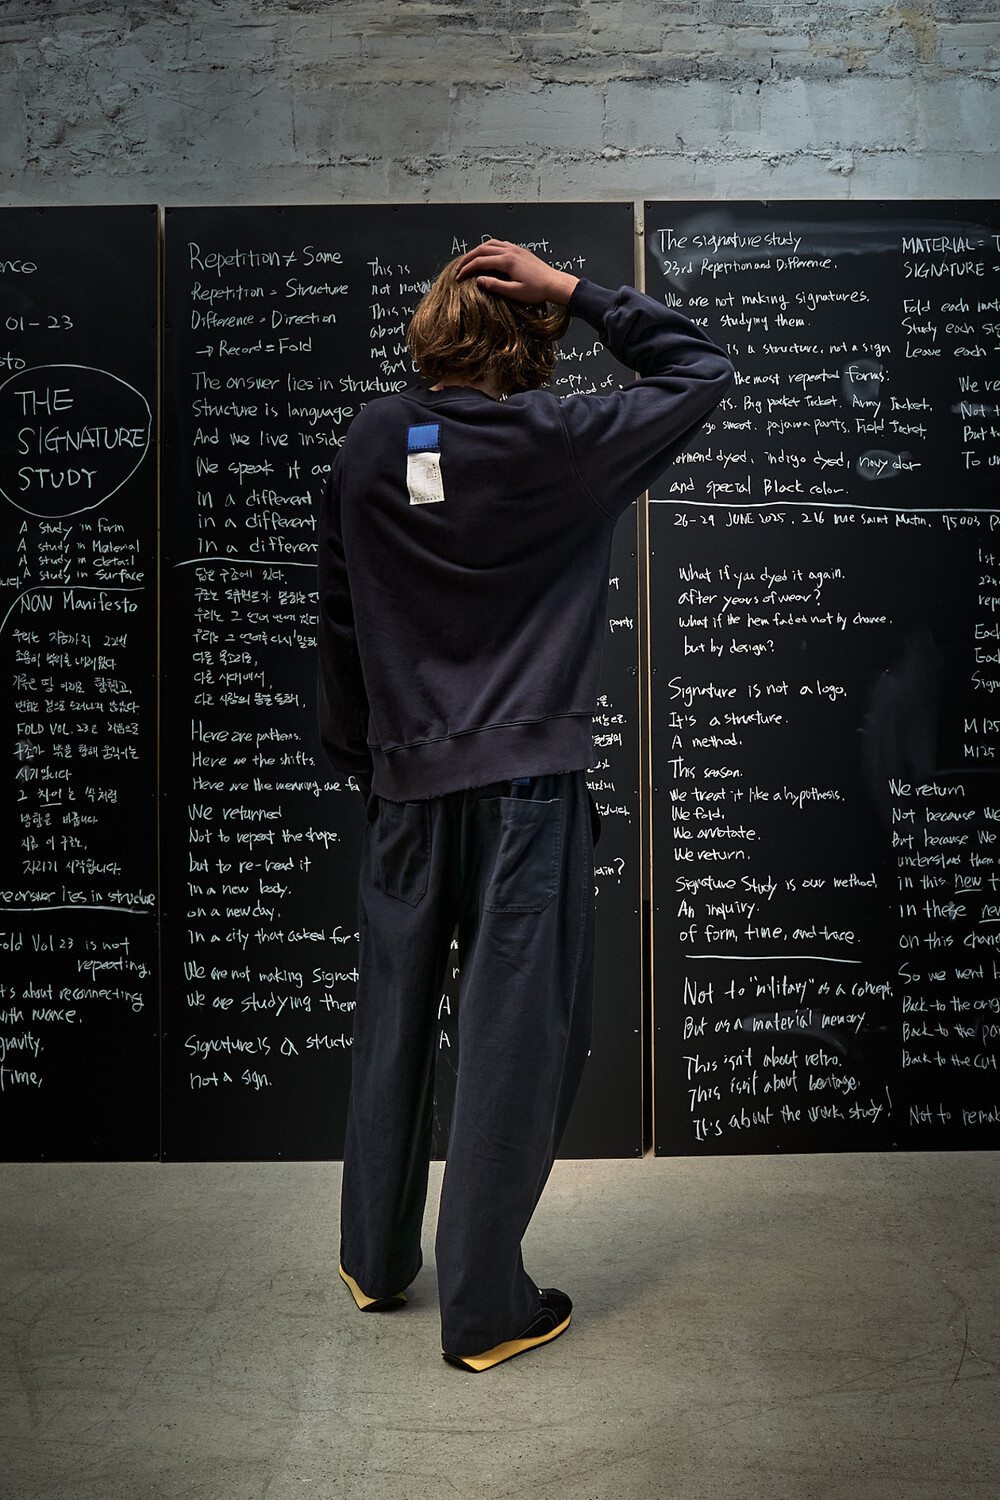 ence
01-23
sto
THE
SIGNATURE
STUDY
A study in form
A study in Material
A study in detail
A study in Surface
니다.
NOW Manifesto
우리는 지금까지 22번
조용히 밖아를 내려왔다
기록은 땅 아래로 향했고,
변화는 겉으로 드러나지 않았다
FOLD VOL. 23은 처음으로
구조가 밖을 향해 움직이는
시기입니다
그 차이는 싹처럼
방향을 바꿉니다
지금 이 구조는,
자라기 시작합니다.
he answer lies in structure
Fold Vol 23 is not
repeating.
t's about reconnecting
with nuance,
gravity,
Time,
Repetition ≠ Same
Repetition = Structure
Difference = Direction
→ Record = Fold
The answer lies in structure
Structure is language
And we live inside
We speak it ag
in a different
in a different
in a differen
답은 구조에 있다.
우리는 그 언어 안에 있다
우리는 그 언어를 다시 말하
다른 목소리로,
다른 시대에서,
다른 사람의 몸을 통해,
Here are patterns.
Here are the shifts.
Here are the meaning we fo
We returned
Not to repeat the shape.
but to re-read it
in a new body.
on a new day.
In a city that asked for s
We are not making Signat
We are studying them
Signature is a structu
not a sign.
At
ument,
This is
isn't
not
This is
about
not
But
study of
copy,
method of
nt
parts
ain?
?
A
A
The signature study
23rd Repetition and Difference.
We are not making signatures,
are studying them.
is a structure, not a sign
the most repeated forms:
ts. Big pocket Jacket. Army Jacket.
go sweat. pajama pants, Field Jacket,
arment dyed, indigo dyed, navy dar
and special Black color.
26-29 JUNE 2025. 216 rue Saint Martin, 75003 P
What if you dyed it again.
after years of wear?
what if the hem faded not by chance.
but by design?
Signature is not a logo,
It's a structure.
A method.
This season.
We treat it like a hypothesis.
We fold.
We annotate.
We return.
Signature Study is our method,
An inquiry.
of form, time, and trace.
Not to "military" as a concept,
But as a material memory
This isn't about retro.
This isn't about heritage.
It's about the work study!
MATERIAL = T
SIGNATURE =
Fold each mat
Study each sig
Leave each
We re
Not t
But t
To un
1st.
22n
repe
Eac
Eac
Sign
M 125
M125
We return
Not because we
But because We
understand them
in this new t
in these ne
on this chan
So we went b
Back to the orig
Back to the pa
Back to the cut
Not to remak